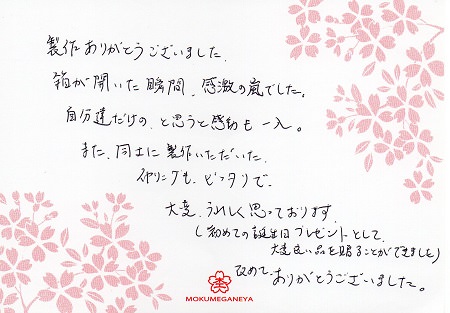 製作ありがとうございました。
箱が開いた瞬間、感激の嵐でした。
自分達だけの、と思うと感動も一入。
また、同士に製作いただいた、
イヤリングも、ピッタリで、
大変、うれしく思っております。
(初めての誕生日プレゼントとして、
大変良い品を賜ることができました)
改めて、ありがとうございました。
MOKUMEGANEYA